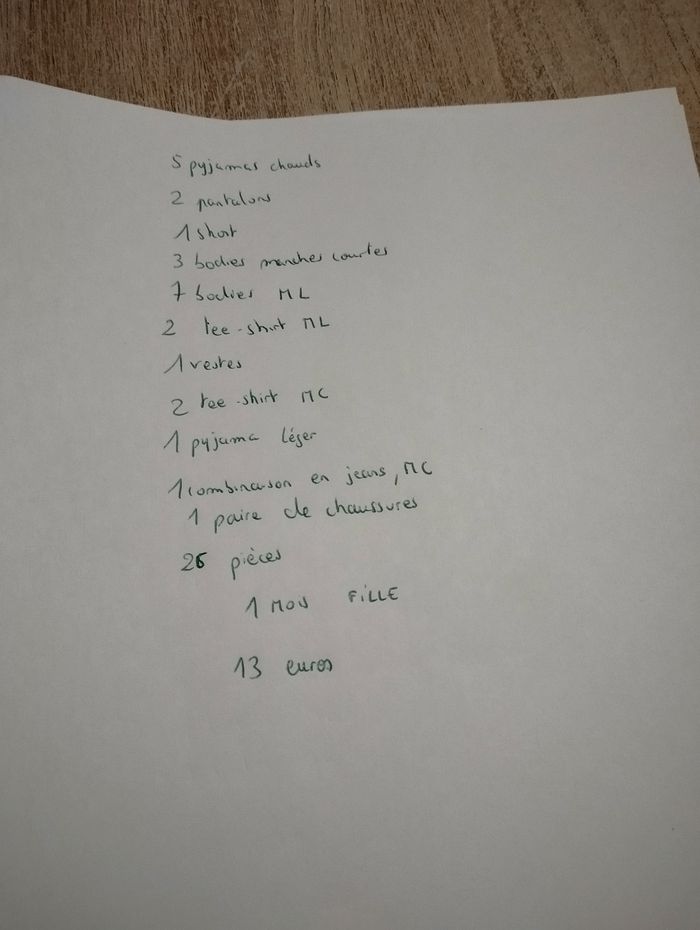 5 pyjamas chauds
2 pantalons
1 short
3 bodies manches courtes
7 bodies ML
2 tee-shirt ML
1 vestes
2 tee-shirt MC
1 pyjama léger
1 combinaison en jeans, MC
1 paire de chaussures
26 pièces
1 MOIS FILLE
13 euros